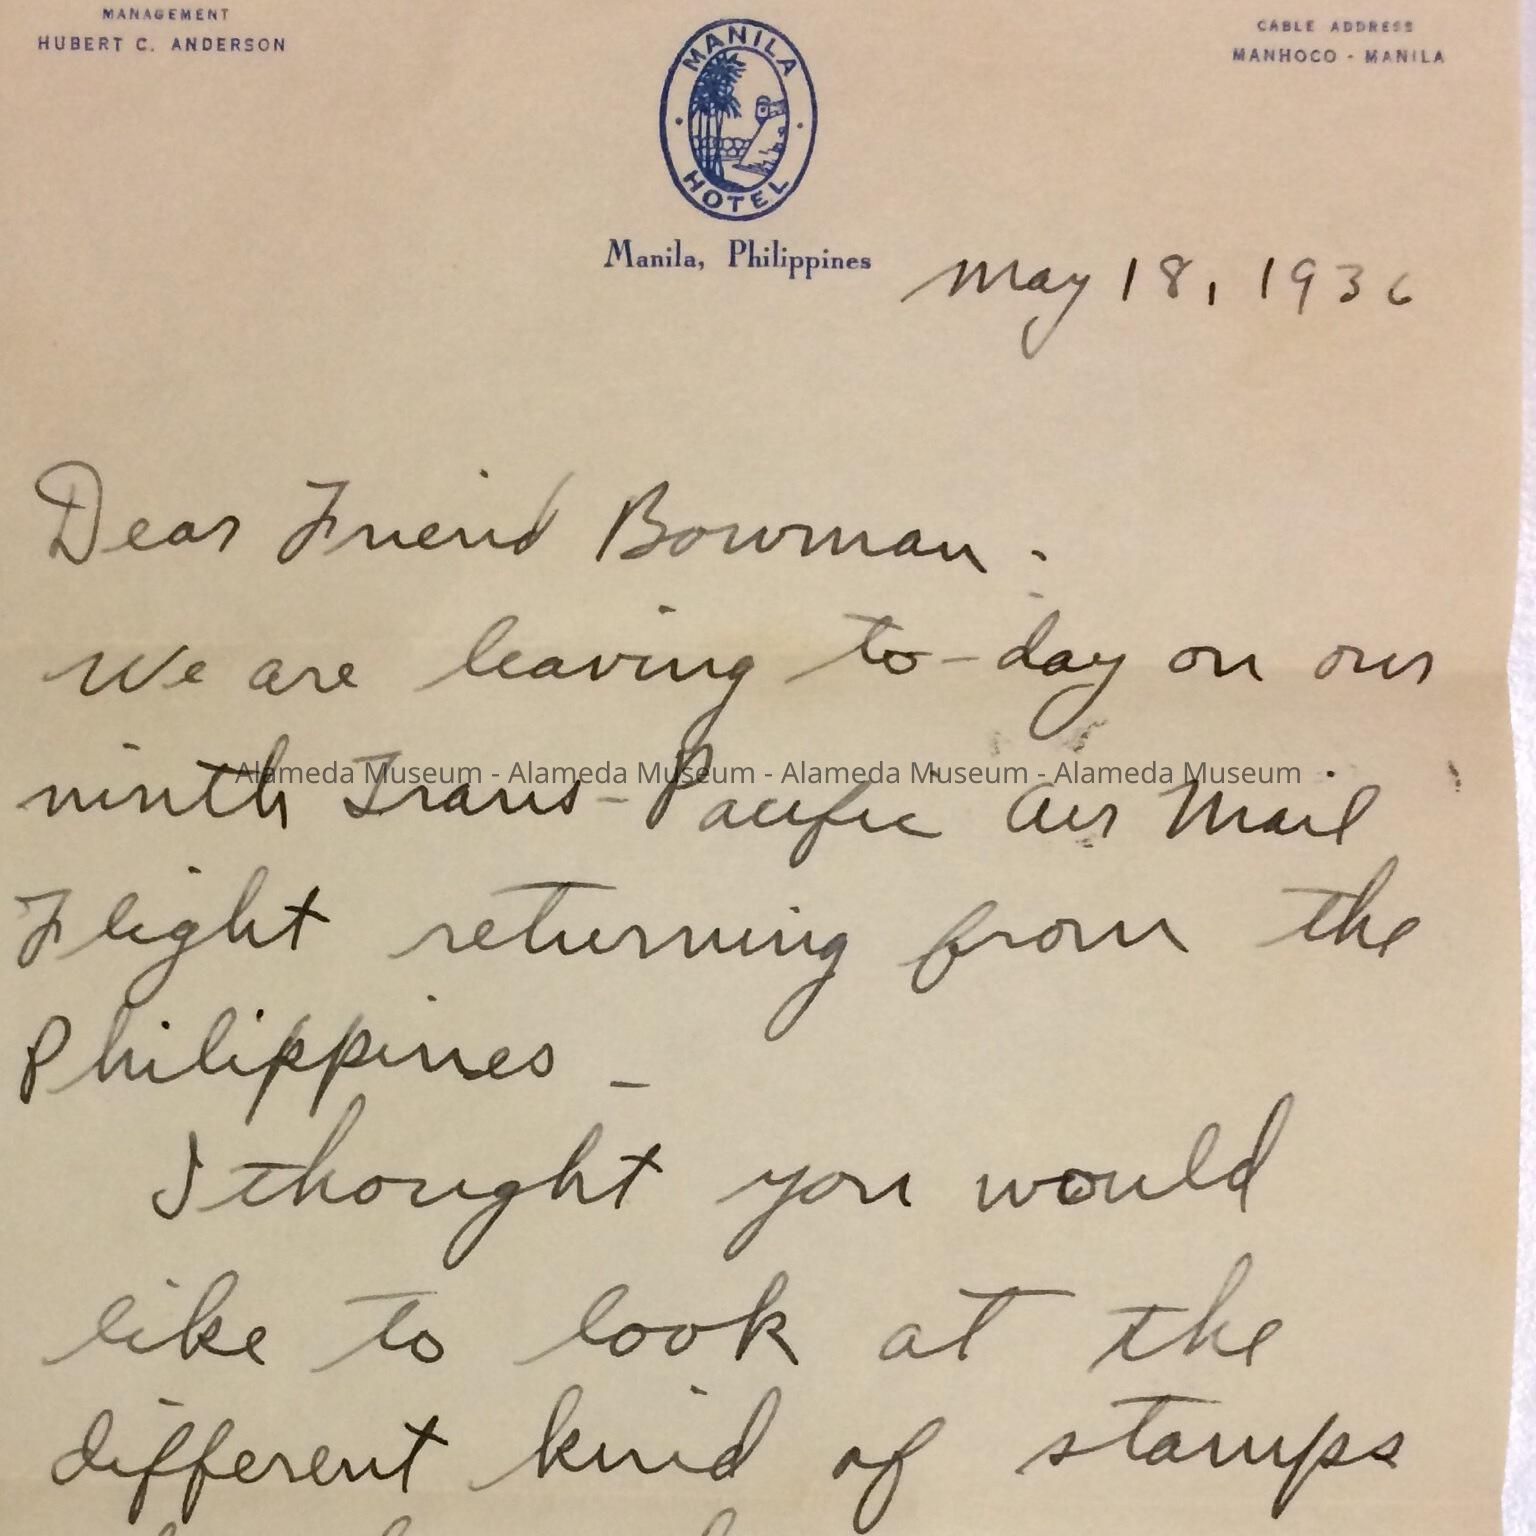 MANAGEMENT
HUBERT C. ANDERSON
MANILA
HOTEL
Manila, Philippines
CABLE ADDRESS
MANHOCO - MANILA
May 18, 1936
Dear Friend Bowman:
We are leaving to-day on our
ninth Trans-Pacific Air Mail
Alameda Museum - Alameda Museum - Alameda Museum - Alameda Museum
Flight returning from the
Philippines -
I thought you would
like to look at the
different kind of stamps